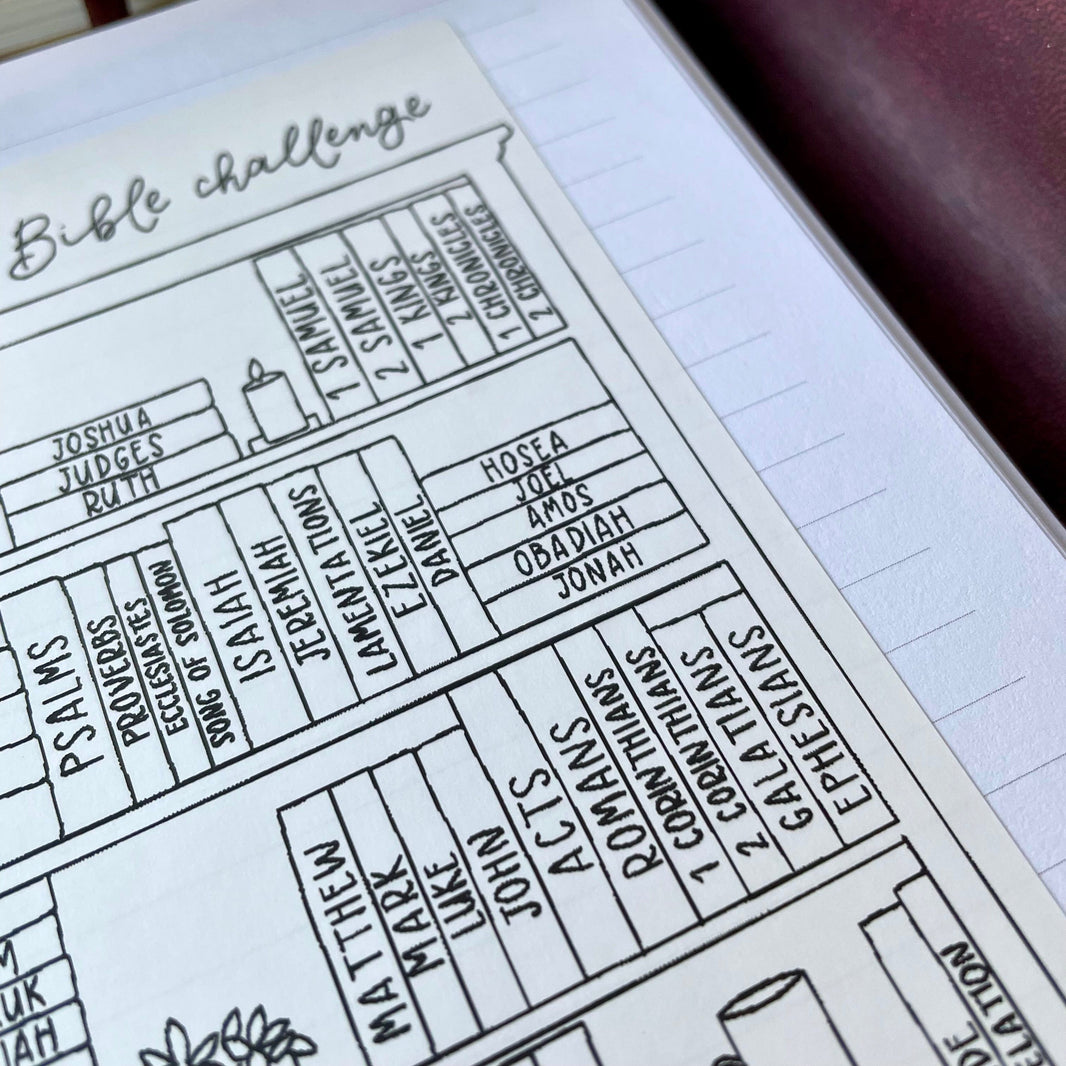 Bible challenge
JOSHUA
JUDGES
RUTH
1 SAMUEL
2 SAMUEL
1 KINGS
2 KINGS
1 CHRONICLES
2 CHRONICLES
PSALMS
PROVERBS
ECCLESIASTES
SONG OF SOLOMON
ISAIAH
JEREMIAH
LAMENTATIONS
EZKIEL
DANIEL
HOSEA
JOEL
AMOS
OBADIAH
JONAH
M
UK
IAH
MATTHEW
MARK
LUKE
JOHN
ACTS
ROMANS
1 CORINTHIANS
2 CORINTHIANS
GALATIANS
EPHESIANS
DE
ELATION